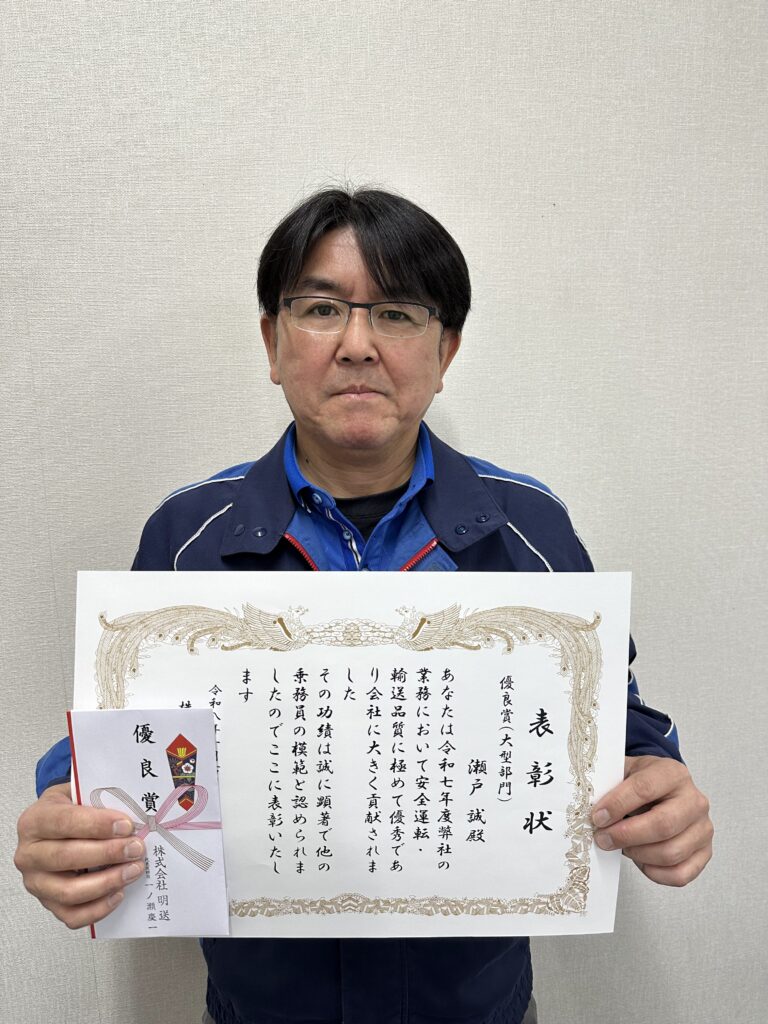 表彰状
優良賞(大型部門)
瀬戸 誠殿
あなたは令和七年度弊社の
業務において安全運転・
輸送品質に極めて優秀であ
り会社に大きく貢献されま
した
その功績は誠に顕著で他の
乗務員の模範と認められま
したのでここに表彰いたし
ます
令和八年一月
株
優良賞
株式会社明送
代表取締役 一ノ瀬慶一